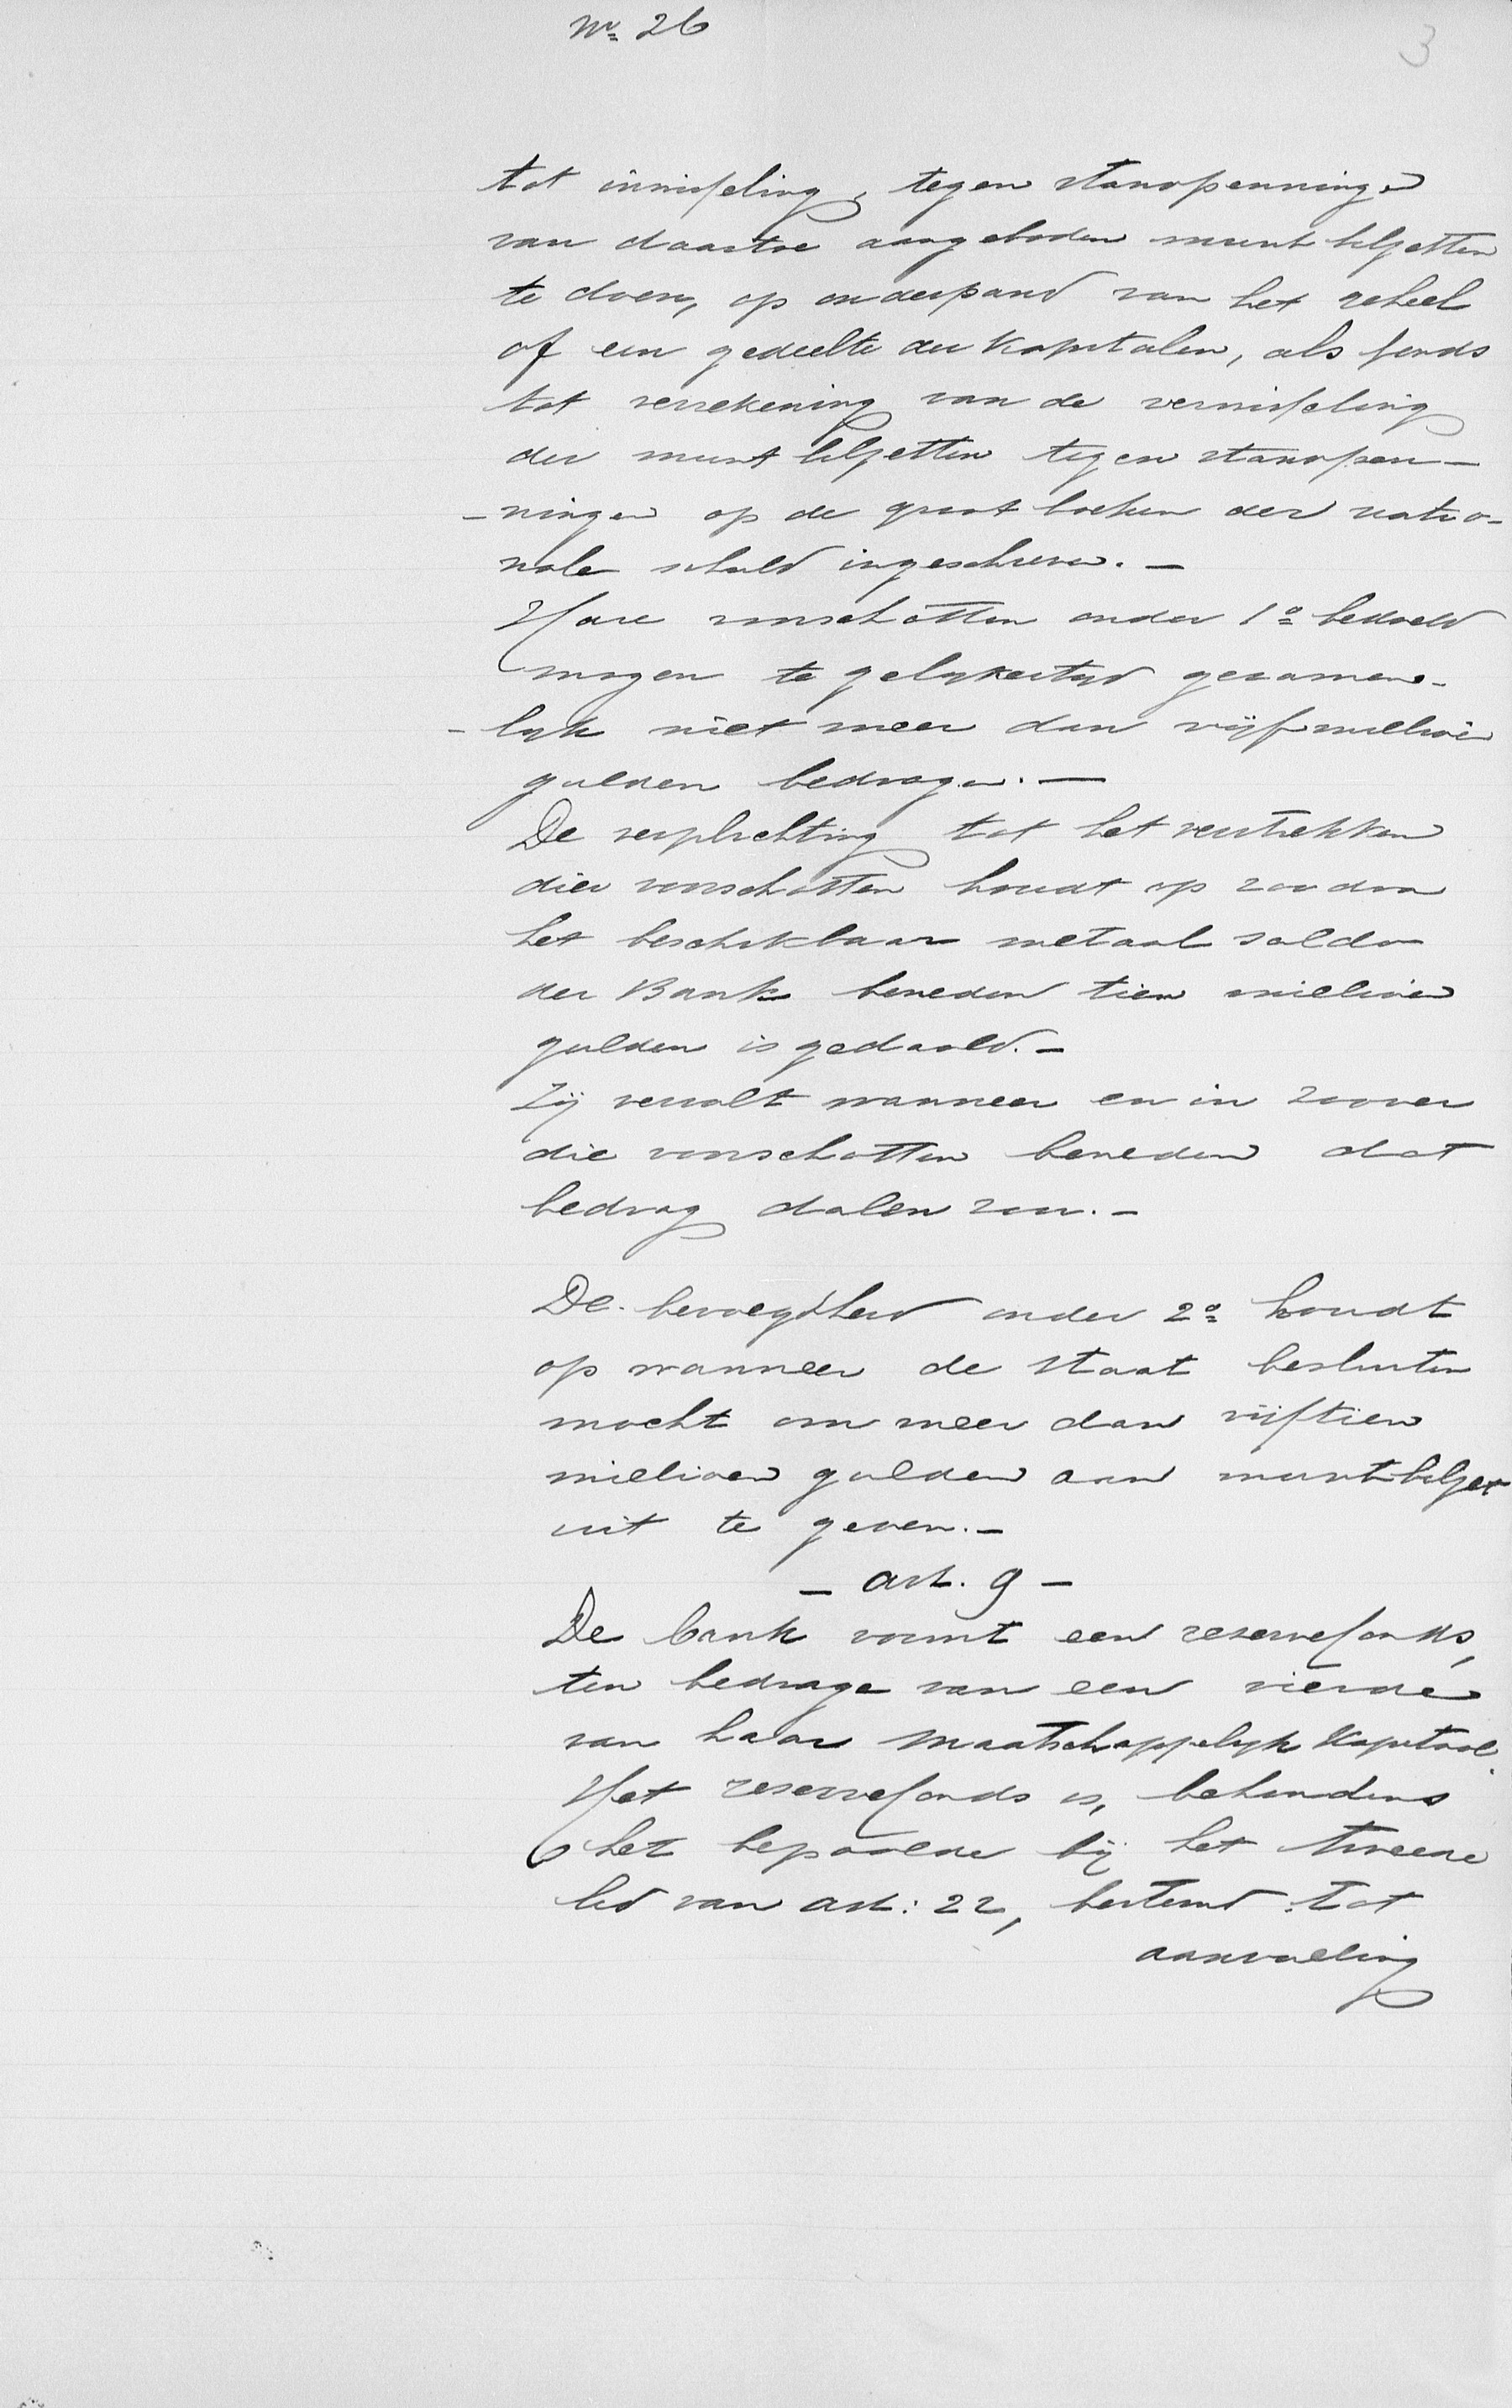 No. 26
3
tot inwisseling, tegen standpenningen
van daartoe aangeboden muntbiljetten
te doen, op onderpand van het geheel
of een gedeelte der kapitalen, als fonds
tot verrekening van de verwisseling
der muntbiljetten tegen standpen-
-ningen op de grootboeken der natio-
nale schuld ingeschreven. -
Hare voorschotten onder 1o bedoeld
mogen te gelijkertijd gezamen-
-lijk niet meer dan vijf millioen
gulden bedragen. -
De verplichting tot het verstrekken
dier voorschotten houdt op zoodra
het beschikbaar metaal saldo
der Bank beneden tien millioen
gulden is gedaald. -
Zij vervalt wanneer en in zoover
die voorschotten beneden dat
bedrag dalen zou. -
De bevoegdheid onder 2o houdt
op wanneer de Staat besluiten
mocht om meer dan vijftien
millioen gulden aan muntbiljet
uit te geven. -
- art. 9 -
De bank vormt een reservefonds,
ten bedrage van een vierde
van haar Maatschappelijk Kapitaal.
Het reservefonds is, behoudens
het bepaalde bij het tweede
lid van art: 22, bestemd tot
aanvulling